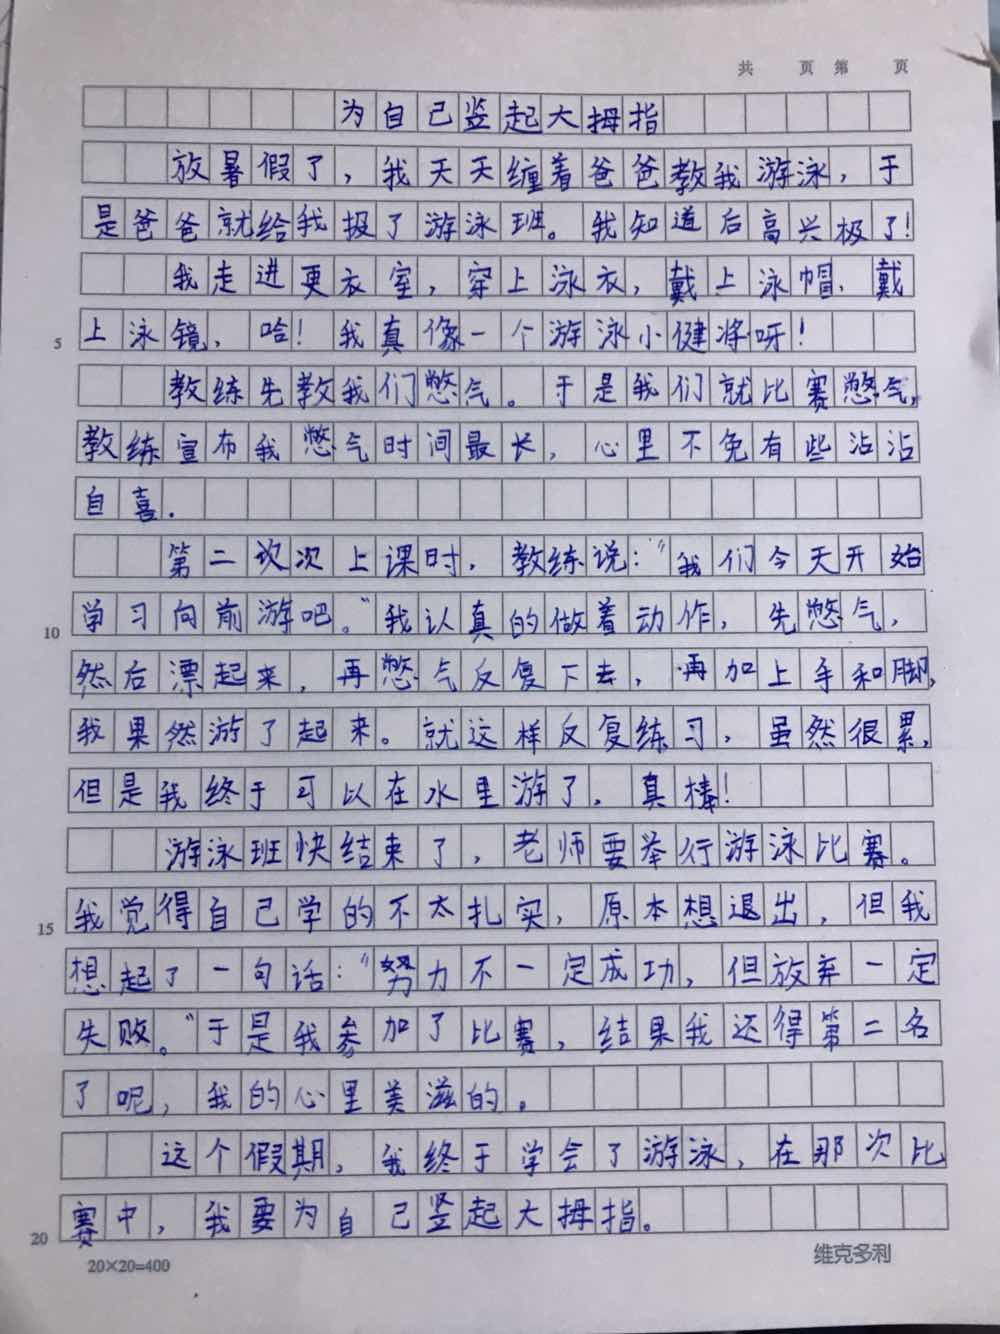 共 页 第 页
为自己竖起大拇指
放暑假了，我天天缠着爸爸教我游泳，于
是爸爸就给我报了游泳班。我知道后高兴极了！
我走进更衣室，穿上泳衣，戴上泳帽、戴
5 上泳镜，哈！我真像一个游泳小健将呀！
教练先教我们憋气。于是我们就比赛憋气，
教练宣布我憋气时间最长，心里不免有些沾沾
自喜.
第二次次上课时，教练说：“我们今天开始
10 学习向前游吧。”我认真的做着动作，先憋气，
然后漂起来，再憋气反复下去，再加上手和脚，
我果然游了起来。就这样反复练习，虽然很累，
但是我终于可以在水里游了，真棒！
游泳班快结束了，老师要举行游泳比赛。
15 我觉得自己学的不太扎实，原本想退出，但我
想起了一句话：“努力不一定成功，但放弃一定
失败。”于是我参加了比赛，结果我还得第二名
了呢，我的心里美滋的。
这个假期，我终于学会了游泳，在那次比
20 赛中，我要为自己竖起大拇指。
20×20=400 维克多利